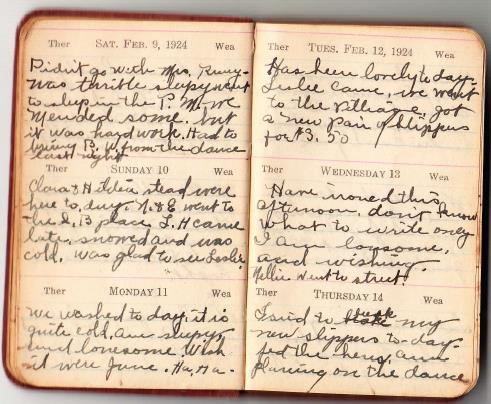 Ther SAT. FEB. 9, 1924 Wea
Didn't go with Mrs.
was terrible sleepy went
to sleep in the P. M. we
mended some, but
it was hard work. Had to
bring B. W. from the dance
last night
Ther SUNDAY 10 Wea
Clara & H. stead were
here to day. N. & E. went to
the place, L. H came
late, snowed and was
cold. was glad to see Leslie.
Ther MONDAY 11 Wea
We washed to day, it is
quite cold, am sleepy
and lonesome, Wish
it were June. Ha, Ha-
Ther TUES. FEB. 12, 1924 Wea
Has been lovely to day-
Leslie came, we went
to the village, got
a new pair of slippers
for $3.50
Ther WEDNESDAY 13 Wea
Have ironed this
afternoon, don't know
what to write only
I am lonsome,
and wishing.
Nellie went to street.
Ther THURSDAY 14 Wea
Tried to my
new slippers to-day-
fed the hens, am
planing on the dance